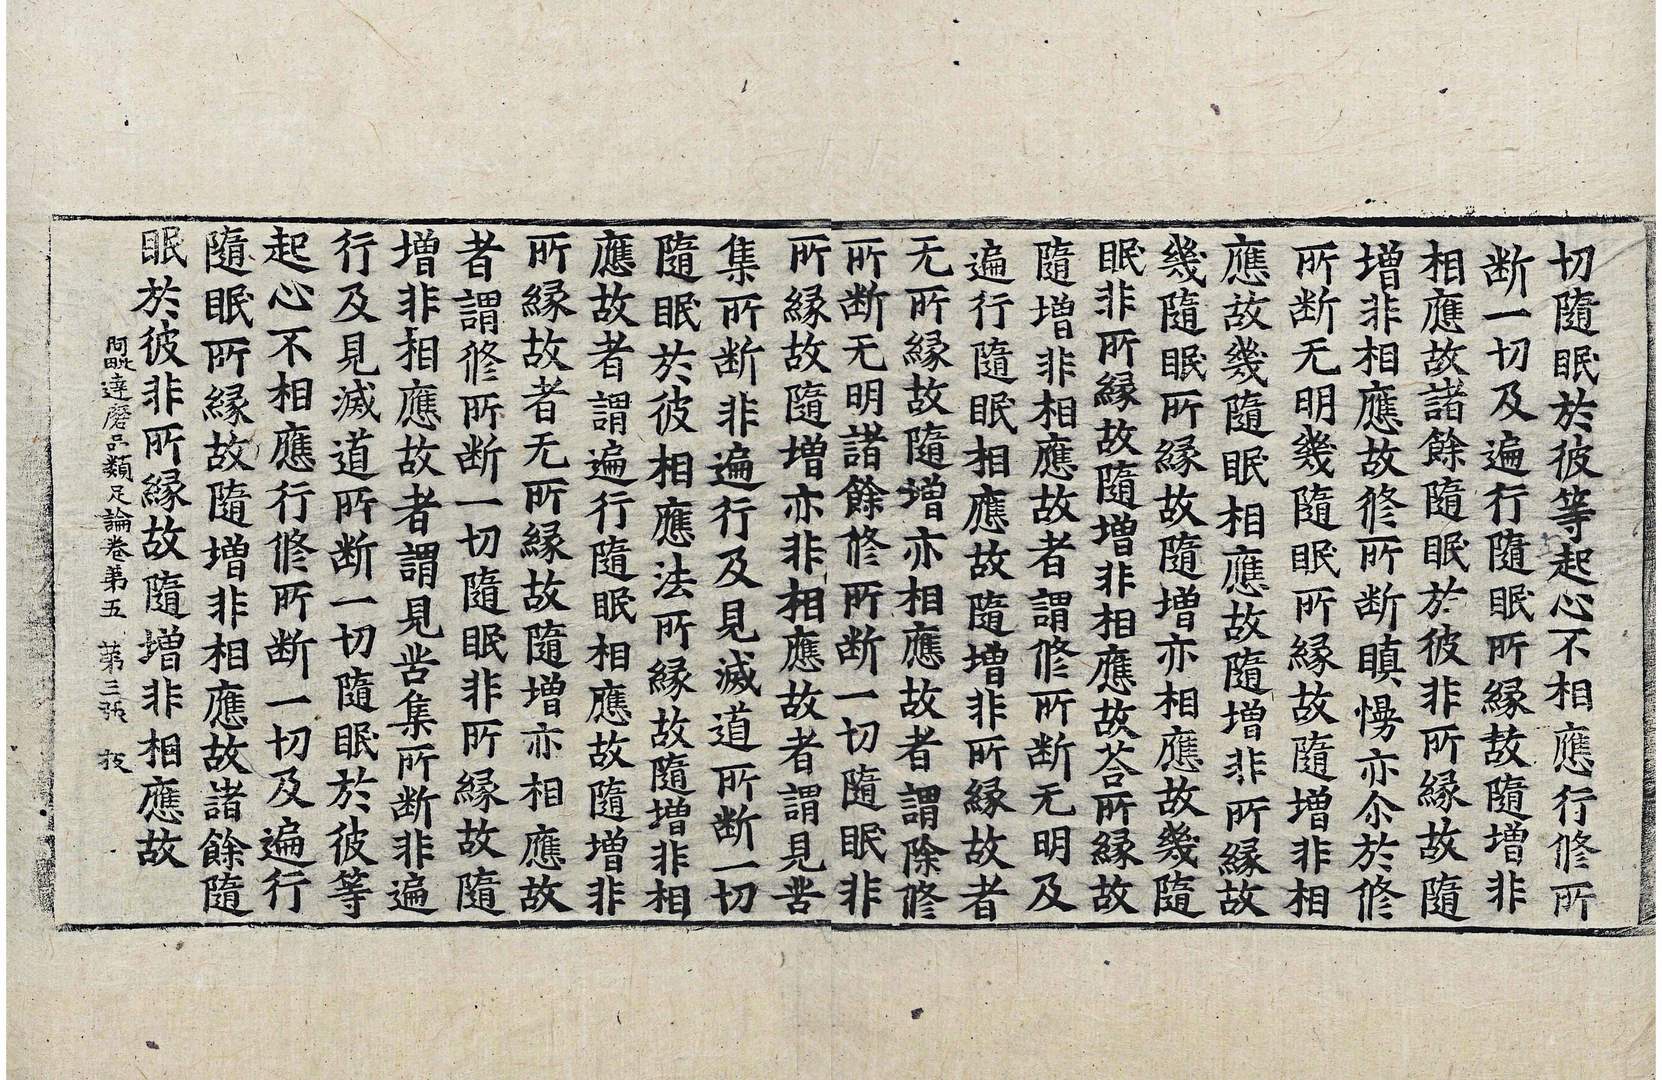 切隨眠於彼等起心不相應行修所
断一切及遍行隨眠所縁故隨增非
相應故諸餘隨眠於彼非所縁故隨
增非相應故修所断瞋慢亦尒於修
所断无明幾隨眠所縁故隨增非相
應故幾隨眠相應故隨增非所縁故
幾隨眠所縁故隨增亦相應故幾隨
眠非所縁故隨增非相應故荅所縁故
隨增非相應故者謂修所断无明及
遍行隨眠相應故隨增非所縁故者
无所縁故隨增亦相應故者謂除修
所断无明諸餘修所断一切隨眠非
所縁故隨增亦非相應故者謂見苦
集所断非遍行及見滅道所断一切
隨眠於彼相應法所縁故隨增非相
應故者謂遍行隨眠相應故隨增非
所縁故者无所縁故隨增亦相應故
者謂修所断一切隨眠非所縁故隨
增非相應故者謂見苦集所断非遍
行及見滅道所断一切隨眠於彼等
起心不相應行修所断一切及遍行
隨眠所縁故隨增非相應故諸餘隨
眠於彼非所縁故隨增非相應故
阿毗達磨品類足論卷第五 第三張 技